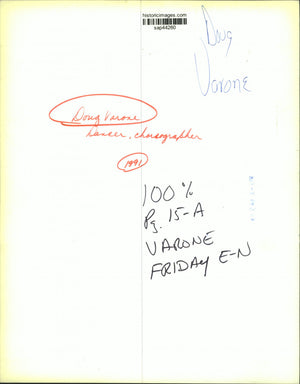 historicimages.com
sap44260
Doug
Varone
Doug Varone
Dancer, choreographer
1991
100%
Pg. 15-A
VARONE
FRIDAY E-N